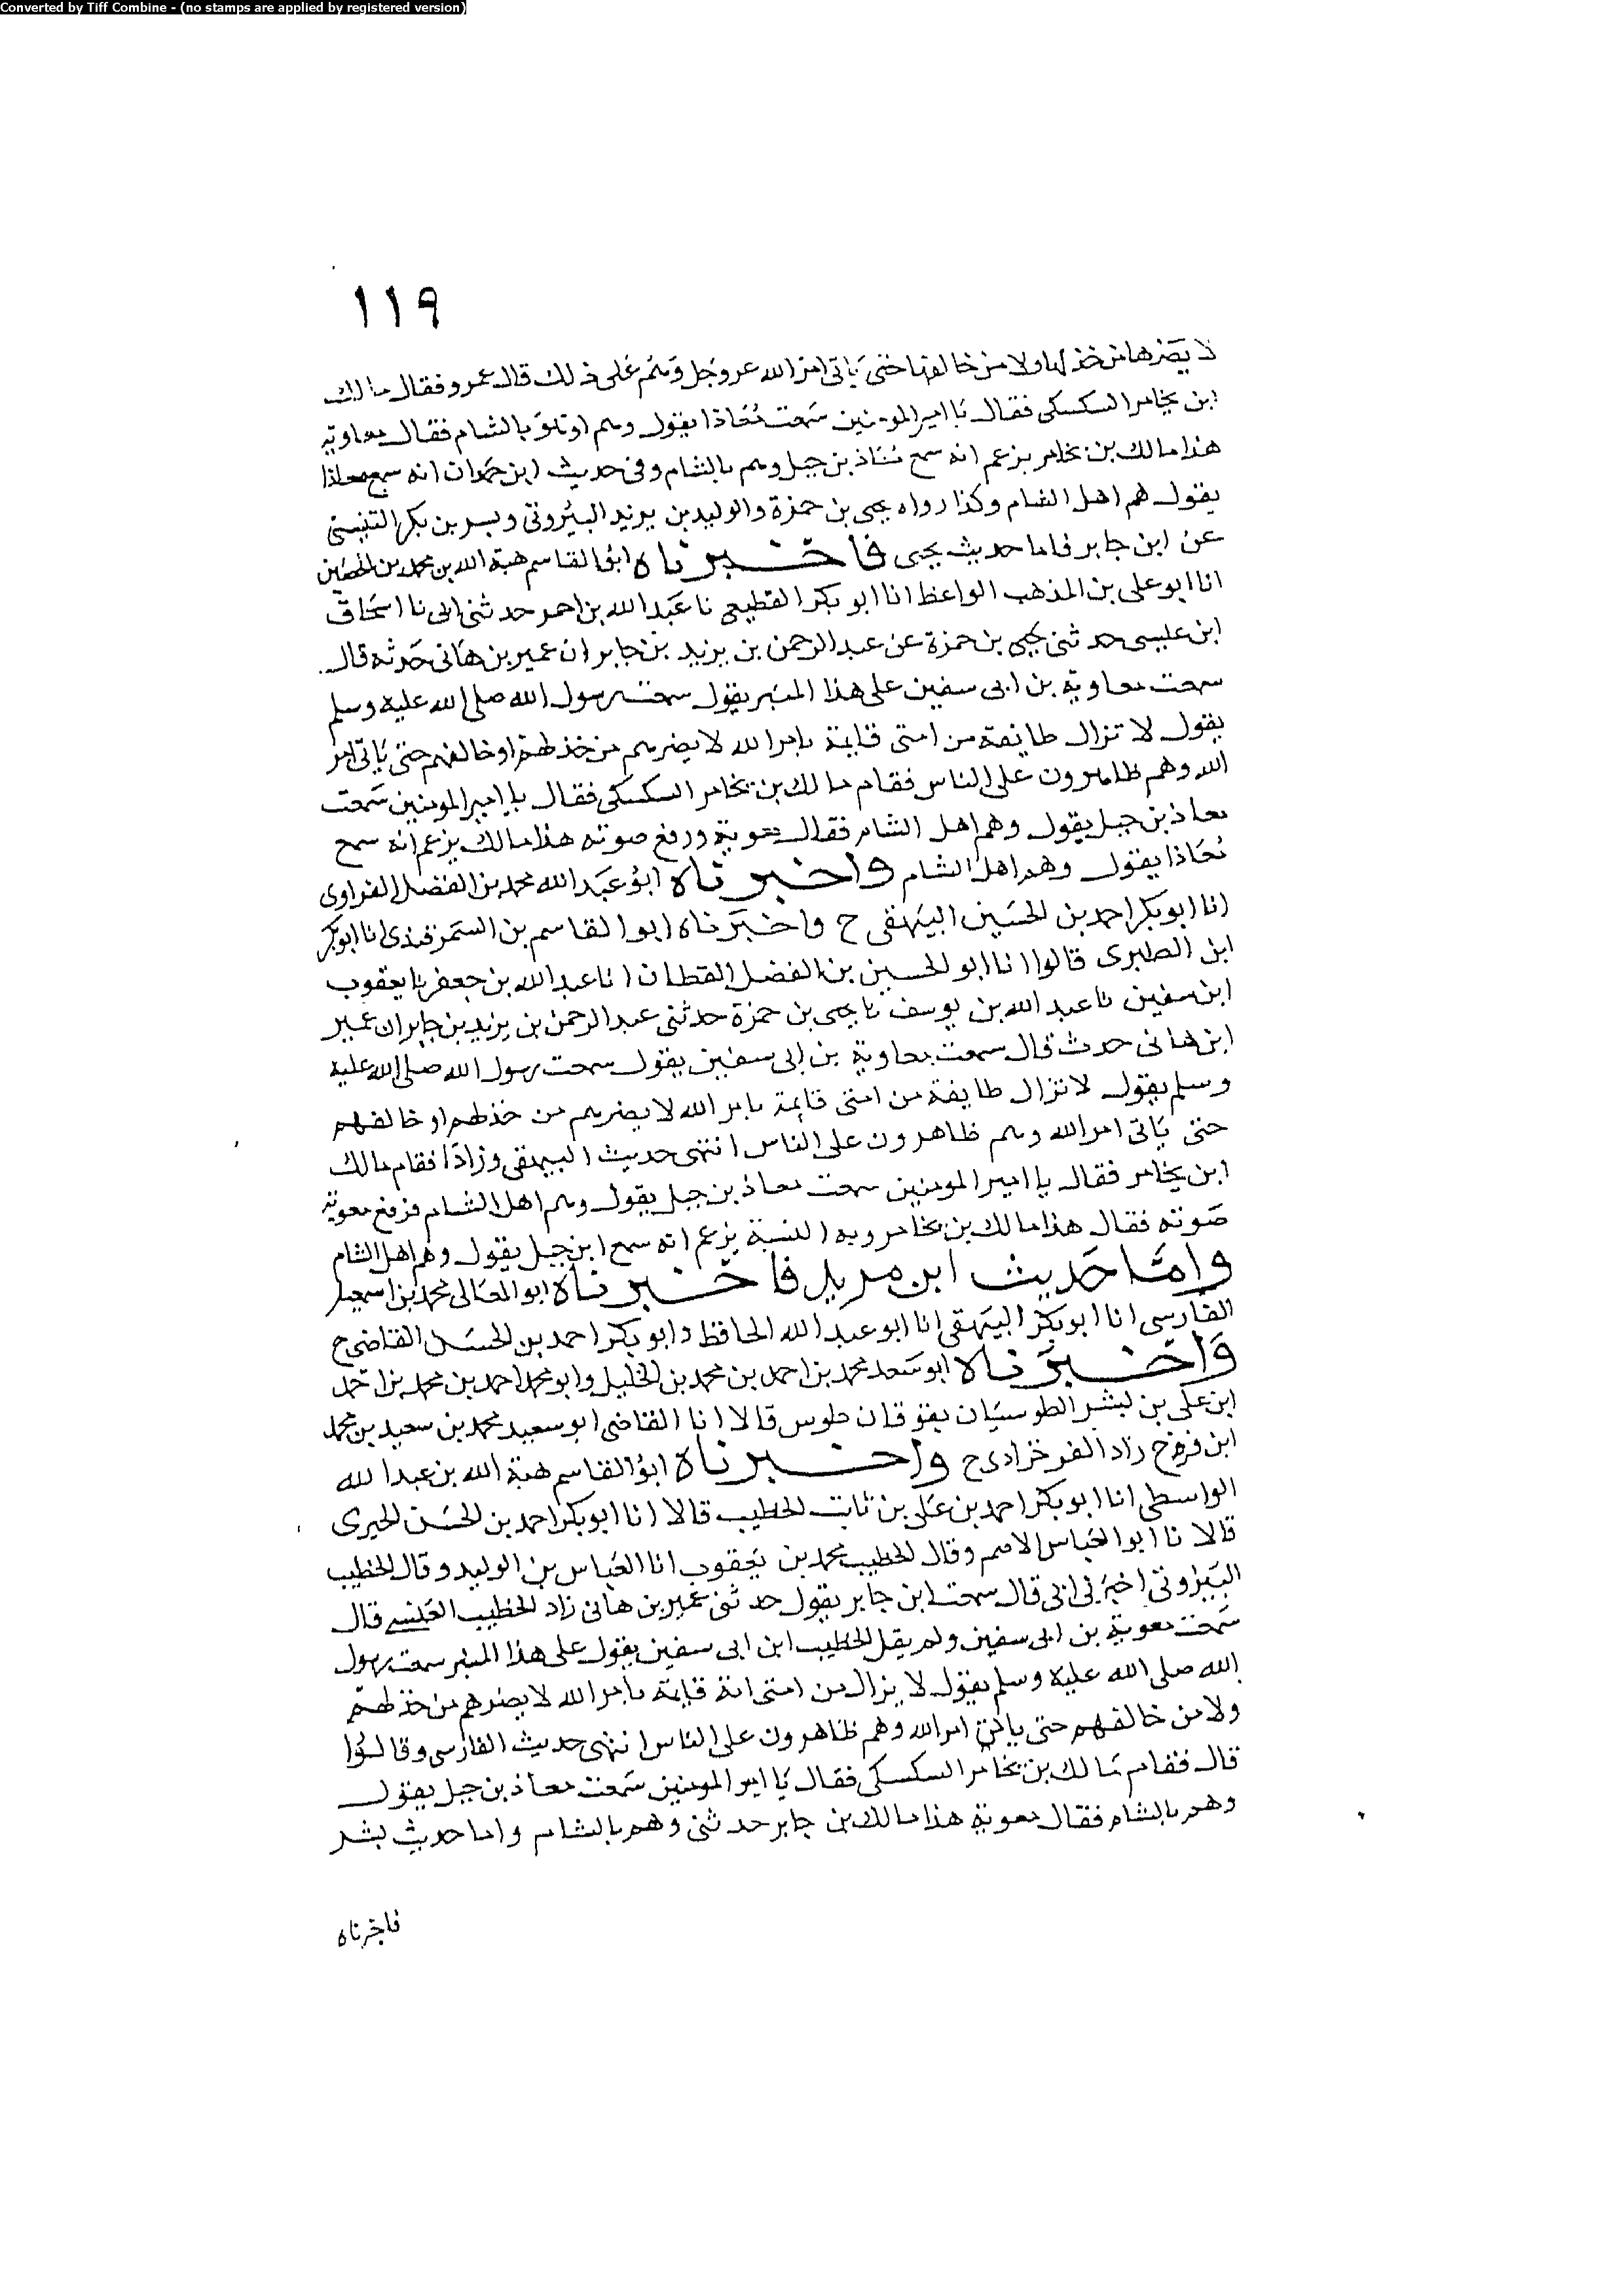 Converted by Tiff Combine - (no stamps are applied by registered version)
١١٩
لا يضرها من خذلها ولا من خالفها حتى ياتى امر الله عز وجل وهم على ذلك قال عمرو فقال مالك
ابن يخامر السكسكى فقال يا امير المومنين سمعت معاذا يقول وهم بالشام فقال معاوية
هذا مالك بن يخامر يزعم انه سمع معاذ بن جبل وهم بالشام وفى حديث ابن حمدان انه سمع معاذا
يقول هم اهل الشام وكذا رواه يحيى بن حمزة والوليد بن يزيد البيروتى وبسر بن بكر التنيسى
عن ابن جابر فاما حديث يحيى فاخبرناه ابو القاسم هبة الله بن محمد بن الحصين
انا ابو على بن المذهب الواعظ انا ابو بكر القطيعى نا عبد الله بن احمد حدثنى ابى نا اسحاق
ابن عليسى حدثنى يحيى بن حمزة عن عبد الرحمن بن يزيد بن جابر ان عمير بن هانى حدثه قال
سمعت معاوية بن ابى سفين على هذا المنبر يقول سمعت رسول الله صلى الله عليه وسلم
يقول لا تزال طائفة من امتى قايمة بامر الله لا يضرهم من خذلهم او خالفهم حتى ياتى امر
الله وهم ظاهرون على الناس فقام مالك بن يخامر السكسكى فقال يا امير المومنين سمعت
معاذ بن جبل يقول وهم اهل الشام فقال معوية ورفع صوته هذا مالك يزعم انه سمع
معاذا يقول وهم اهل الشام واخبرناه ابو عبد الله محمد بن الفضل الفراوى
انا ابو بكر احمد بن الحسين البيهقى ح واخبرناه ابو القاسم بن السمرقندى انا ابو بكر
ابن الطبرى قالوا انا ابو الحسين بن الفضل القطان انا عبد الله بن جعفر نا يعقوب
ابن سفين نا عبد الله بن يوسف نا يحيى بن حمزة حدثنى عبد الرحمن بن يزيد بن جابر ان عمير
ابن هانى حدث قال سمعت معاوية بن ابى سفين يقول سمعت رسول الله صلى الله عليه
وسلم يقول لا تزال طايفة من امتى قايمة بامر الله لا يضرهم من خذلهم او خالفهم
حتى ياتى امر الله وهم ظاهرون على الناس انتهى حديث البيهقى وزادا فقام مالك
ابن يخامر فقال يا امير المومنين سمعت معاذ بن جبل يقول وهم اهل الشام فرفع معوية
صوته فقال هذا مالك بن يخامر وبه النسبة يزعم انه سمع ابن جبل يقول وهم اهل الشام
واما حديث ابن مزيد فاخبرناه ابو المعالى محمد بن اسمعيل
الفارسى انا ابو بكر البيهقى انا ابو عبد الله الحافظ وابو بكر احمد بن الحسن القاضى ح
واخبرناه ابو سعد محمد بن احمد بن محمد بن الخليل وابو محمد احمد بن محمد بن احمد
ابن على بن بشر الطوسيان بنوقان طوس قالا انا القاضى ابو سعيد محمد بن سعيد بن محمد
ابن فرخ زاد الفرخزادى ح واخبرناه ابو القاسم هبة الله بن عبد الله
الواسطى انا ابو بكر احمد بن على بن ثابت الخطيب قالا انا ابو بكر احمد بن الحسن الحيرى
قالا نا ابو العباس الاصم وقال الخطيب محمد بن يعقوب انا العباس بن الوليد وقال الخطيب
البيروتى اخبرنى ابى قال سمعت ابن جابر يقول حدثنى عمير بن هانى زاد الخطيب العنسى قال
سمعت معوية بن ابى سفين ولم يقل الخطيب ابن ابى سفين يقول على هذا المنبر سمعت رسول
الله صلى الله عليه وسلم يقول لا يزال من امتى امة قايمة بامر الله لا يضرهم من خذلهم
ولا من خالفهم حتى ياتى امر الله وهم ظاهرون على الناس انتهى حديث الفارسى وقالوا
قال فقام مالك بن يخامر السكسكى فقال يا امير المومنين سمعت معاذ بن جبل يقول
وهم بالشام فقال معوية هذا مالك بن جابر حدثنى وهم بالشام واما حديث بشر
فاخبرناه